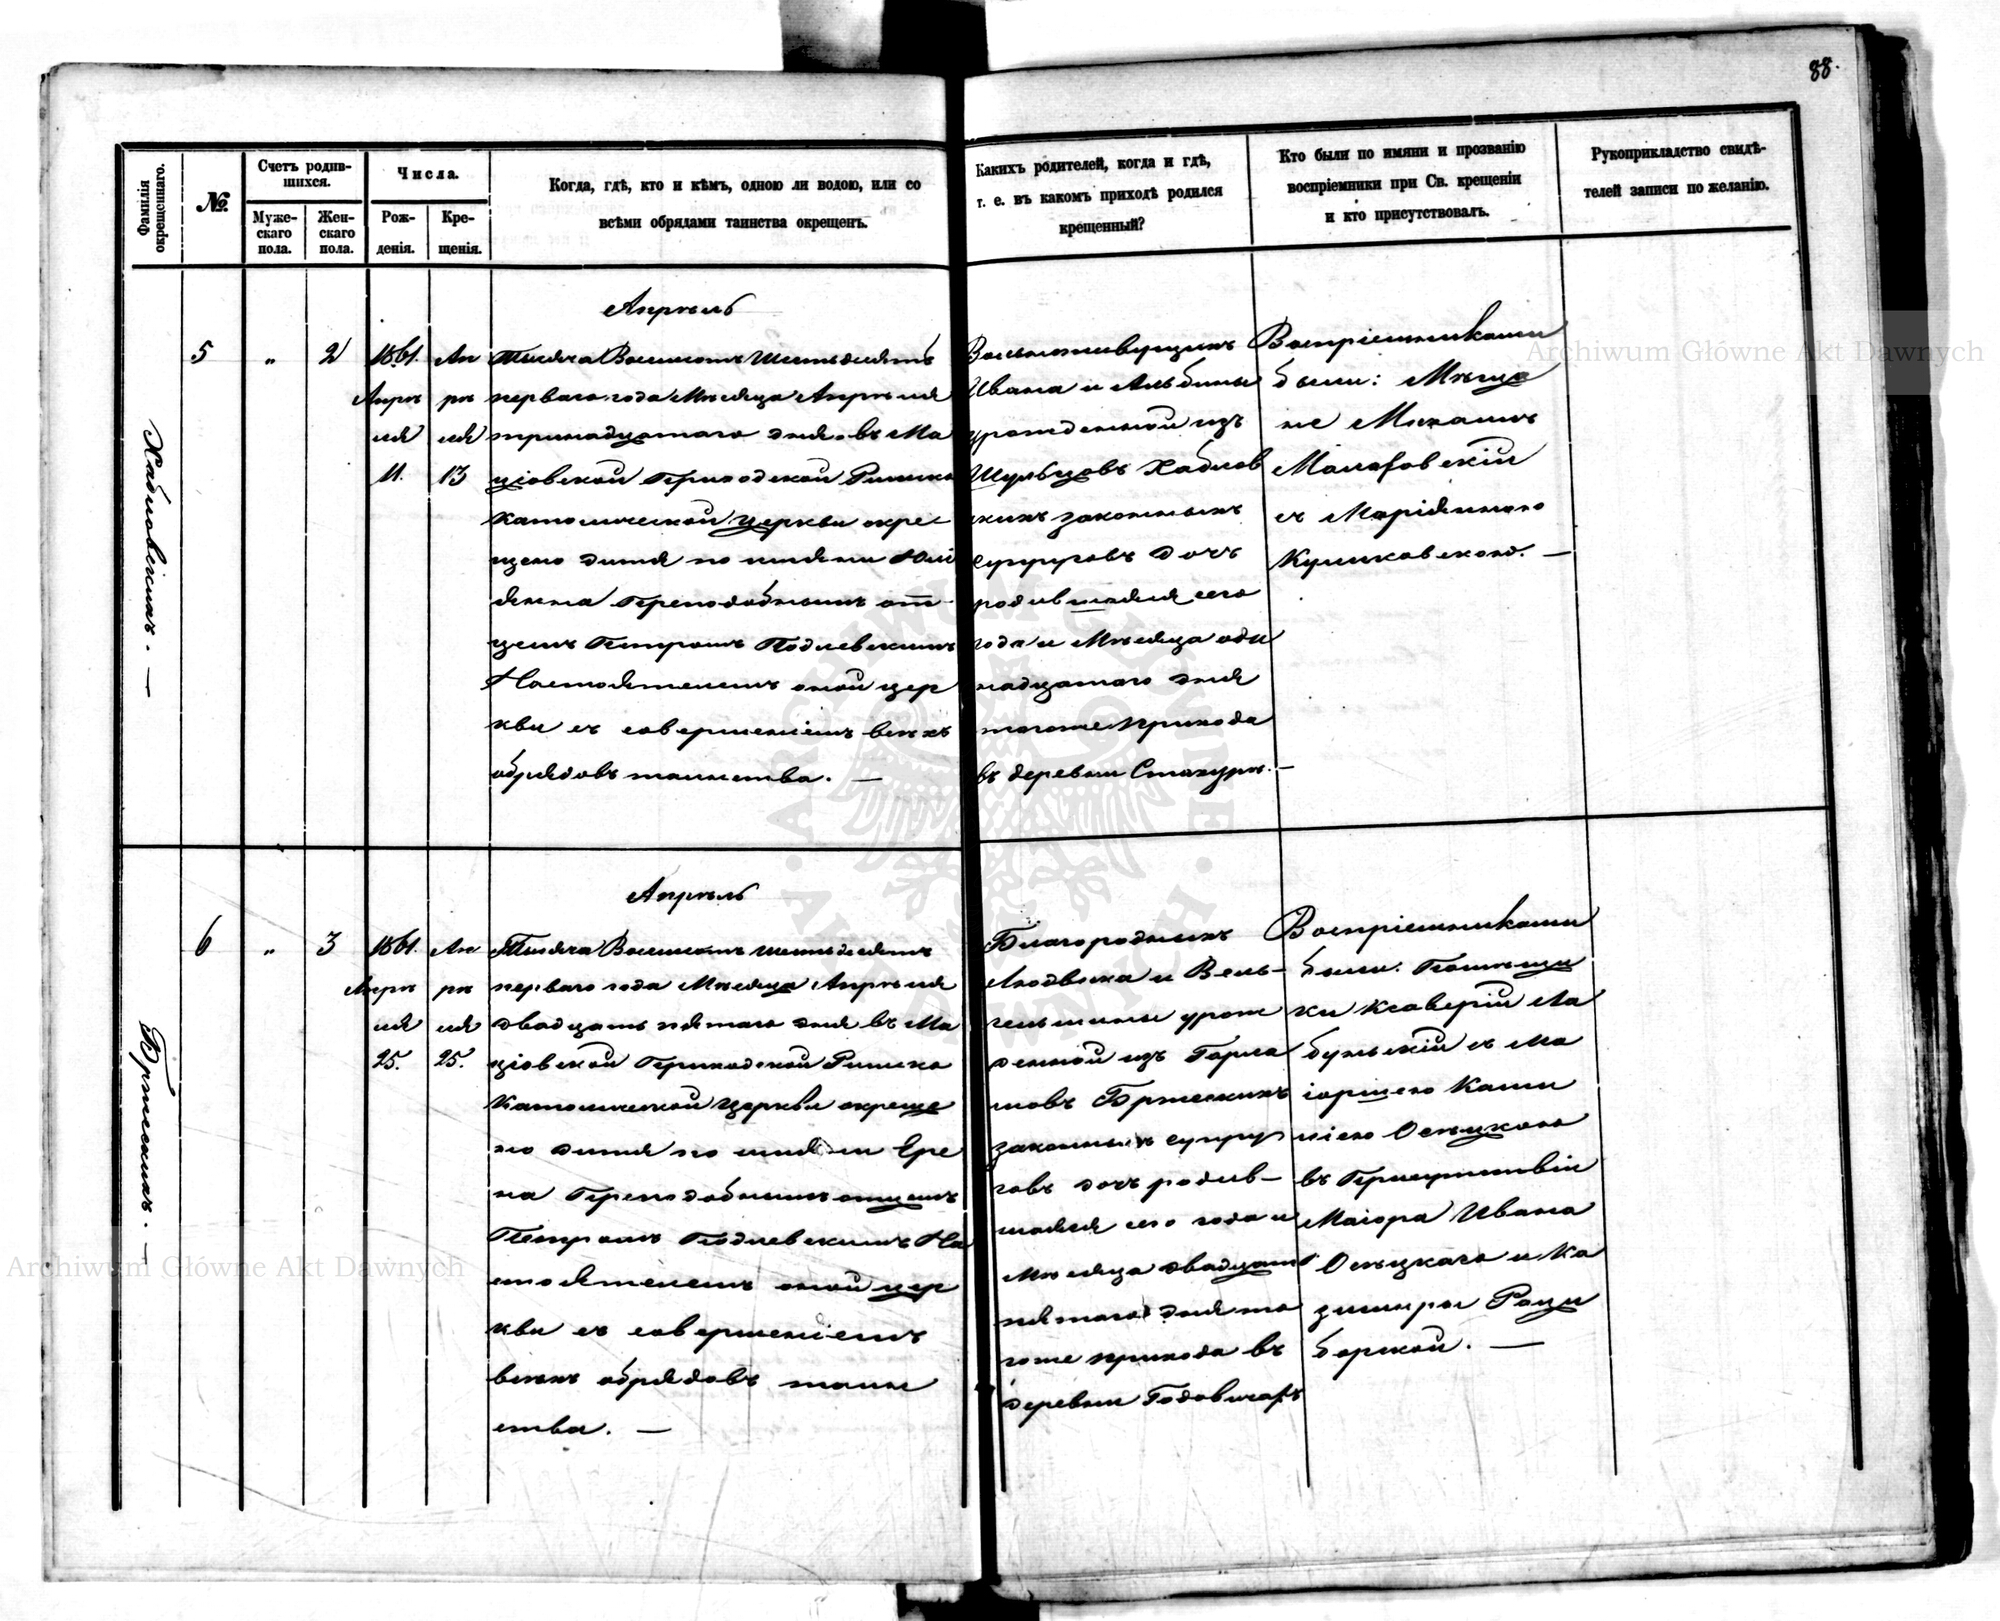 88.
Фамилія
окрещеннаго.
№.
Счетъ родив-
шихся.
Муже-
скаго
пола.
Жен-
скаго
пола.
Числа.
Рож-
денія.
Кре-
щенія.
Когда, гдѣ, кто и кѣмъ, одною ли водою, или со
всѣми обрядами таинства окрещенъ.
Каихъ родителей, когда и гдѣ,
т. е. въ какомъ приходѣ родился
крещенный?
Кто были по имяни и прозванію
воспріемники при Св. крещеніи
и кто присутствовалъ.
Рукоприкладство свидѣ-
телей записи по желанію.
Хабловскихъ. —
5
„
2
1861.
Апрѣ
ля
11.
Ап
рѣ
ля
13
Апрѣль
Тысяча Восемсотъ Шестьдесятъ
перваго года Мѣсяца Апрѣля
тринадцатаго дня въ Ма
ціовской Приходской Римско
Католической Церкви окре
щено дитя по имяни Юлі
янна Преподобнымъ от-
цемъ Петромъ Подлевскимъ
Настоятелемъ оной цер
кви съ совершеніемъ всѣхъ
обрядовъ таинства. —
Вольноживущихъ
Ивана и Альбины
урожденной изъ
Шульцовъ Хаблов
скихъ законныхъ
супруговъ дочь
родившаяся сего
года и Мѣсяца оди
надцатаго дня
тогоже прихода
въ деревни —
Воспріемниками
были: Мѣща
не
съ Маріянною
Куликовскою. —
Бржескихъ. —
6
„
3
1861.
Апрѣ
ля
25.
Ап
рѣ
ля
25.
Апрѣль
Тысяча Восемсотъ шестьдесятъ
перваго года Мѣсяца Апрѣля
двадцать пятаго дня въ Ма
ціовской Приходской Римско
Католической Церкви окреще
но дитя по имяни Ире
на Преподобнымъ отцемъ
Петромъ Подлевскимъ На
стоятелемъ оной цер
кви съ совершеніемъ
всѣхъ обрядовъ таин
ства. —
Благородныхъ
Людвика и Виль-
гельмины урож
денной изъ
Бржескихъ
законныхъ супру
говъ дочь родив-
шаяся сего года и
Мѣсяца двадцать
пятаго дня то
гоже прихода въ
деревни Годовичахъ
Воспріемниками
были: Помѣщи
ки Ксаверій Ла
бунскій съ Ма
іоршею Ками
лею Осѣцкою
въ Присутствіи
Маіора Ивана
Осѣцкаго и Ка
зимиры Раци
борской. —
Archiwum Główne Akt Dawnych
Archiwum Główne Akt Dawnych
ARCHIWUM GŁÓWNE AKT DAWNYCH